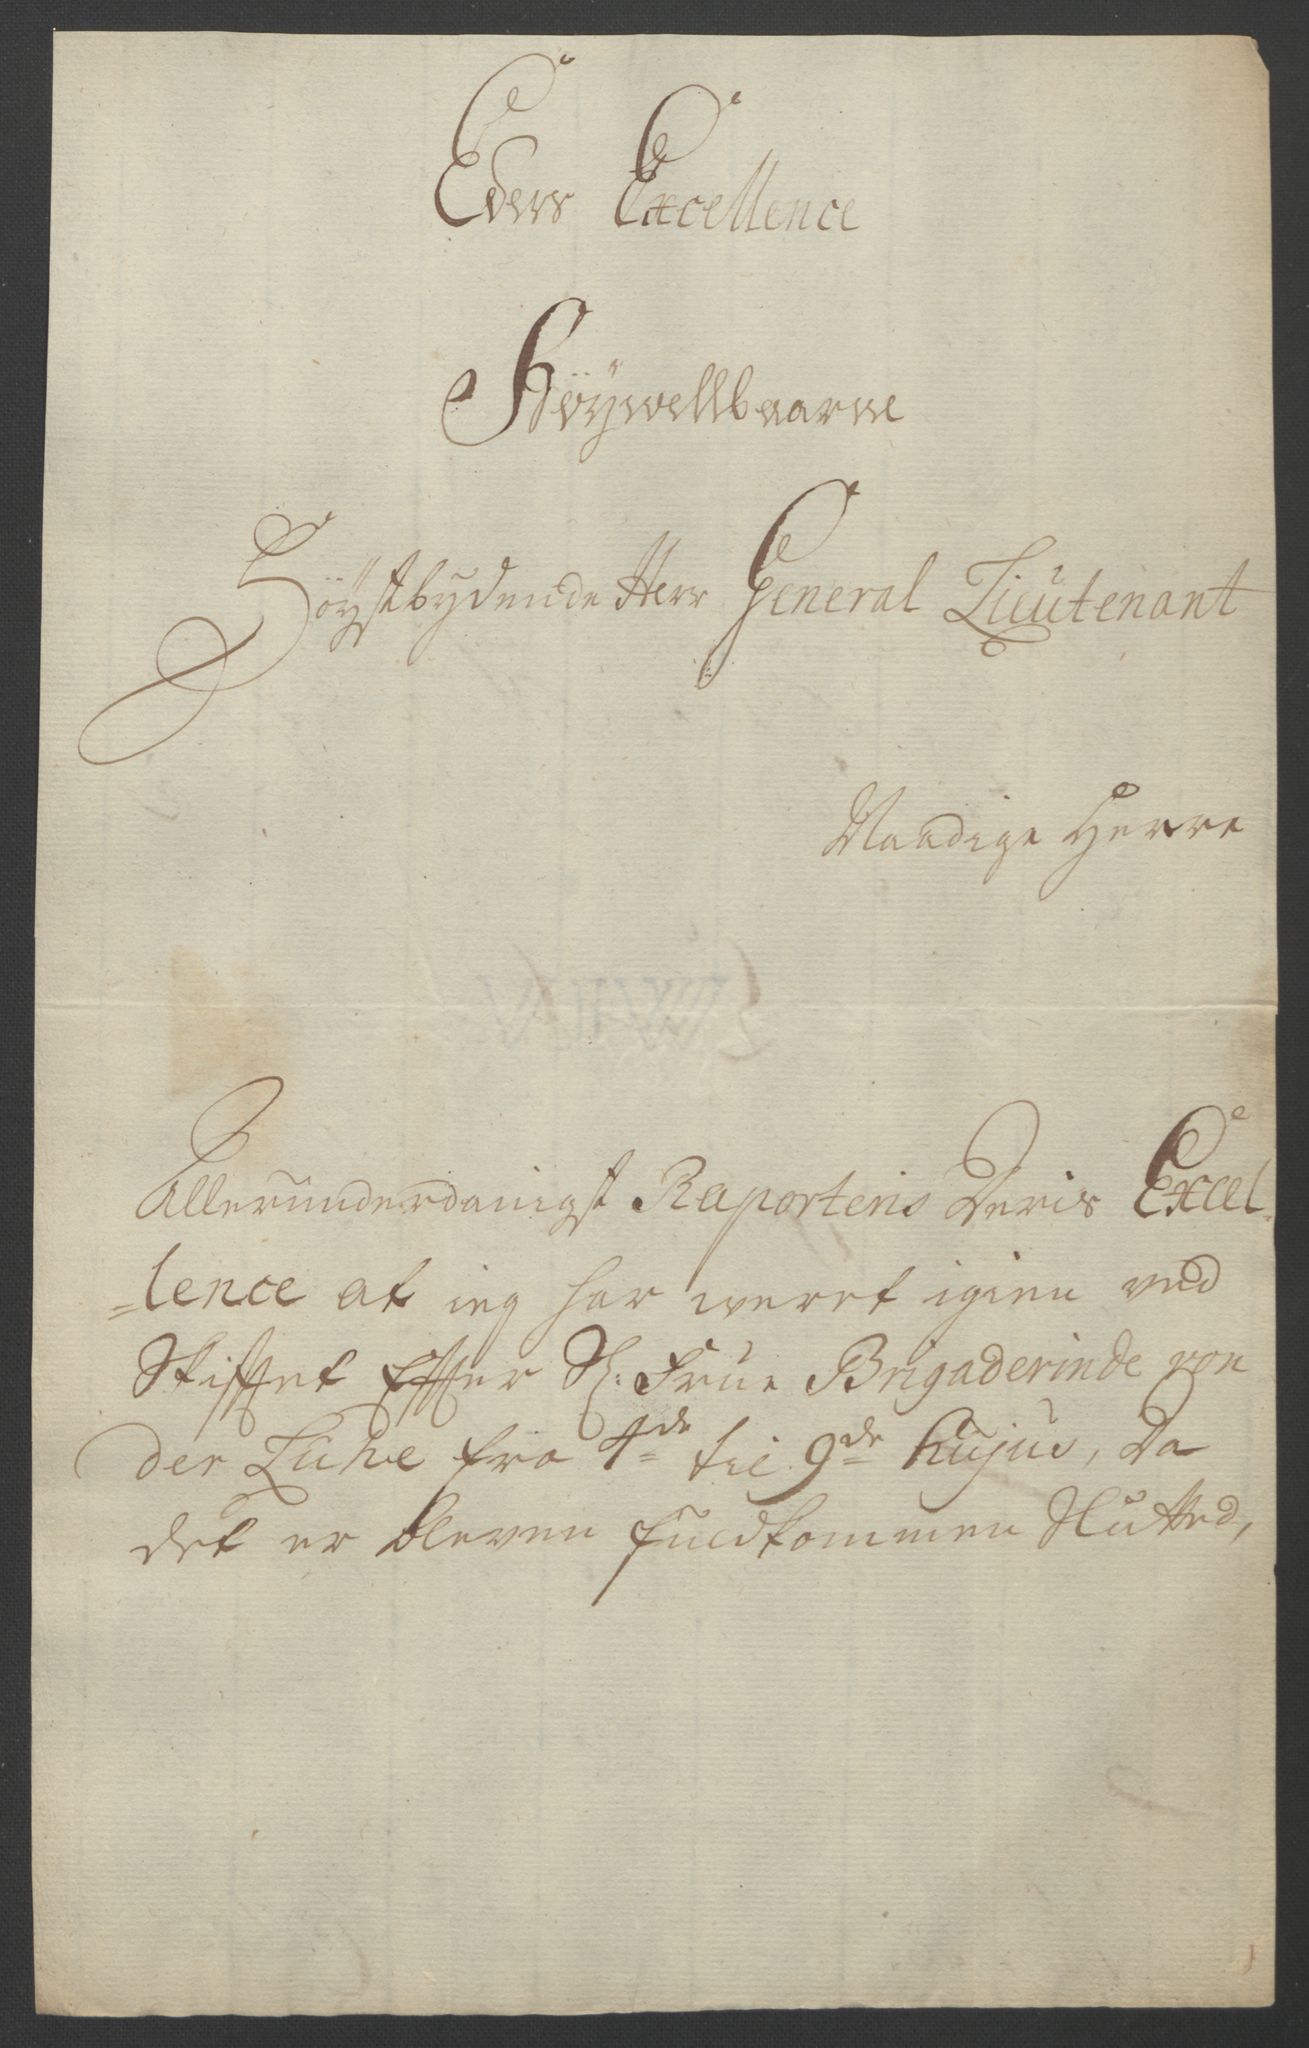 Eders Excellence
Höÿwellbaarne
Höÿstbydende Herr General Lieutenant
Naadige Herre
Allerunderdanigst Raporteris Deris Excel-
=lence at ieg har weret igien ved
Skifftet Effter Sl: Frue Brigaderinde von
der Lühe fra 4de til 9de hujus, da
det er bleven fuldkommen Slutted,